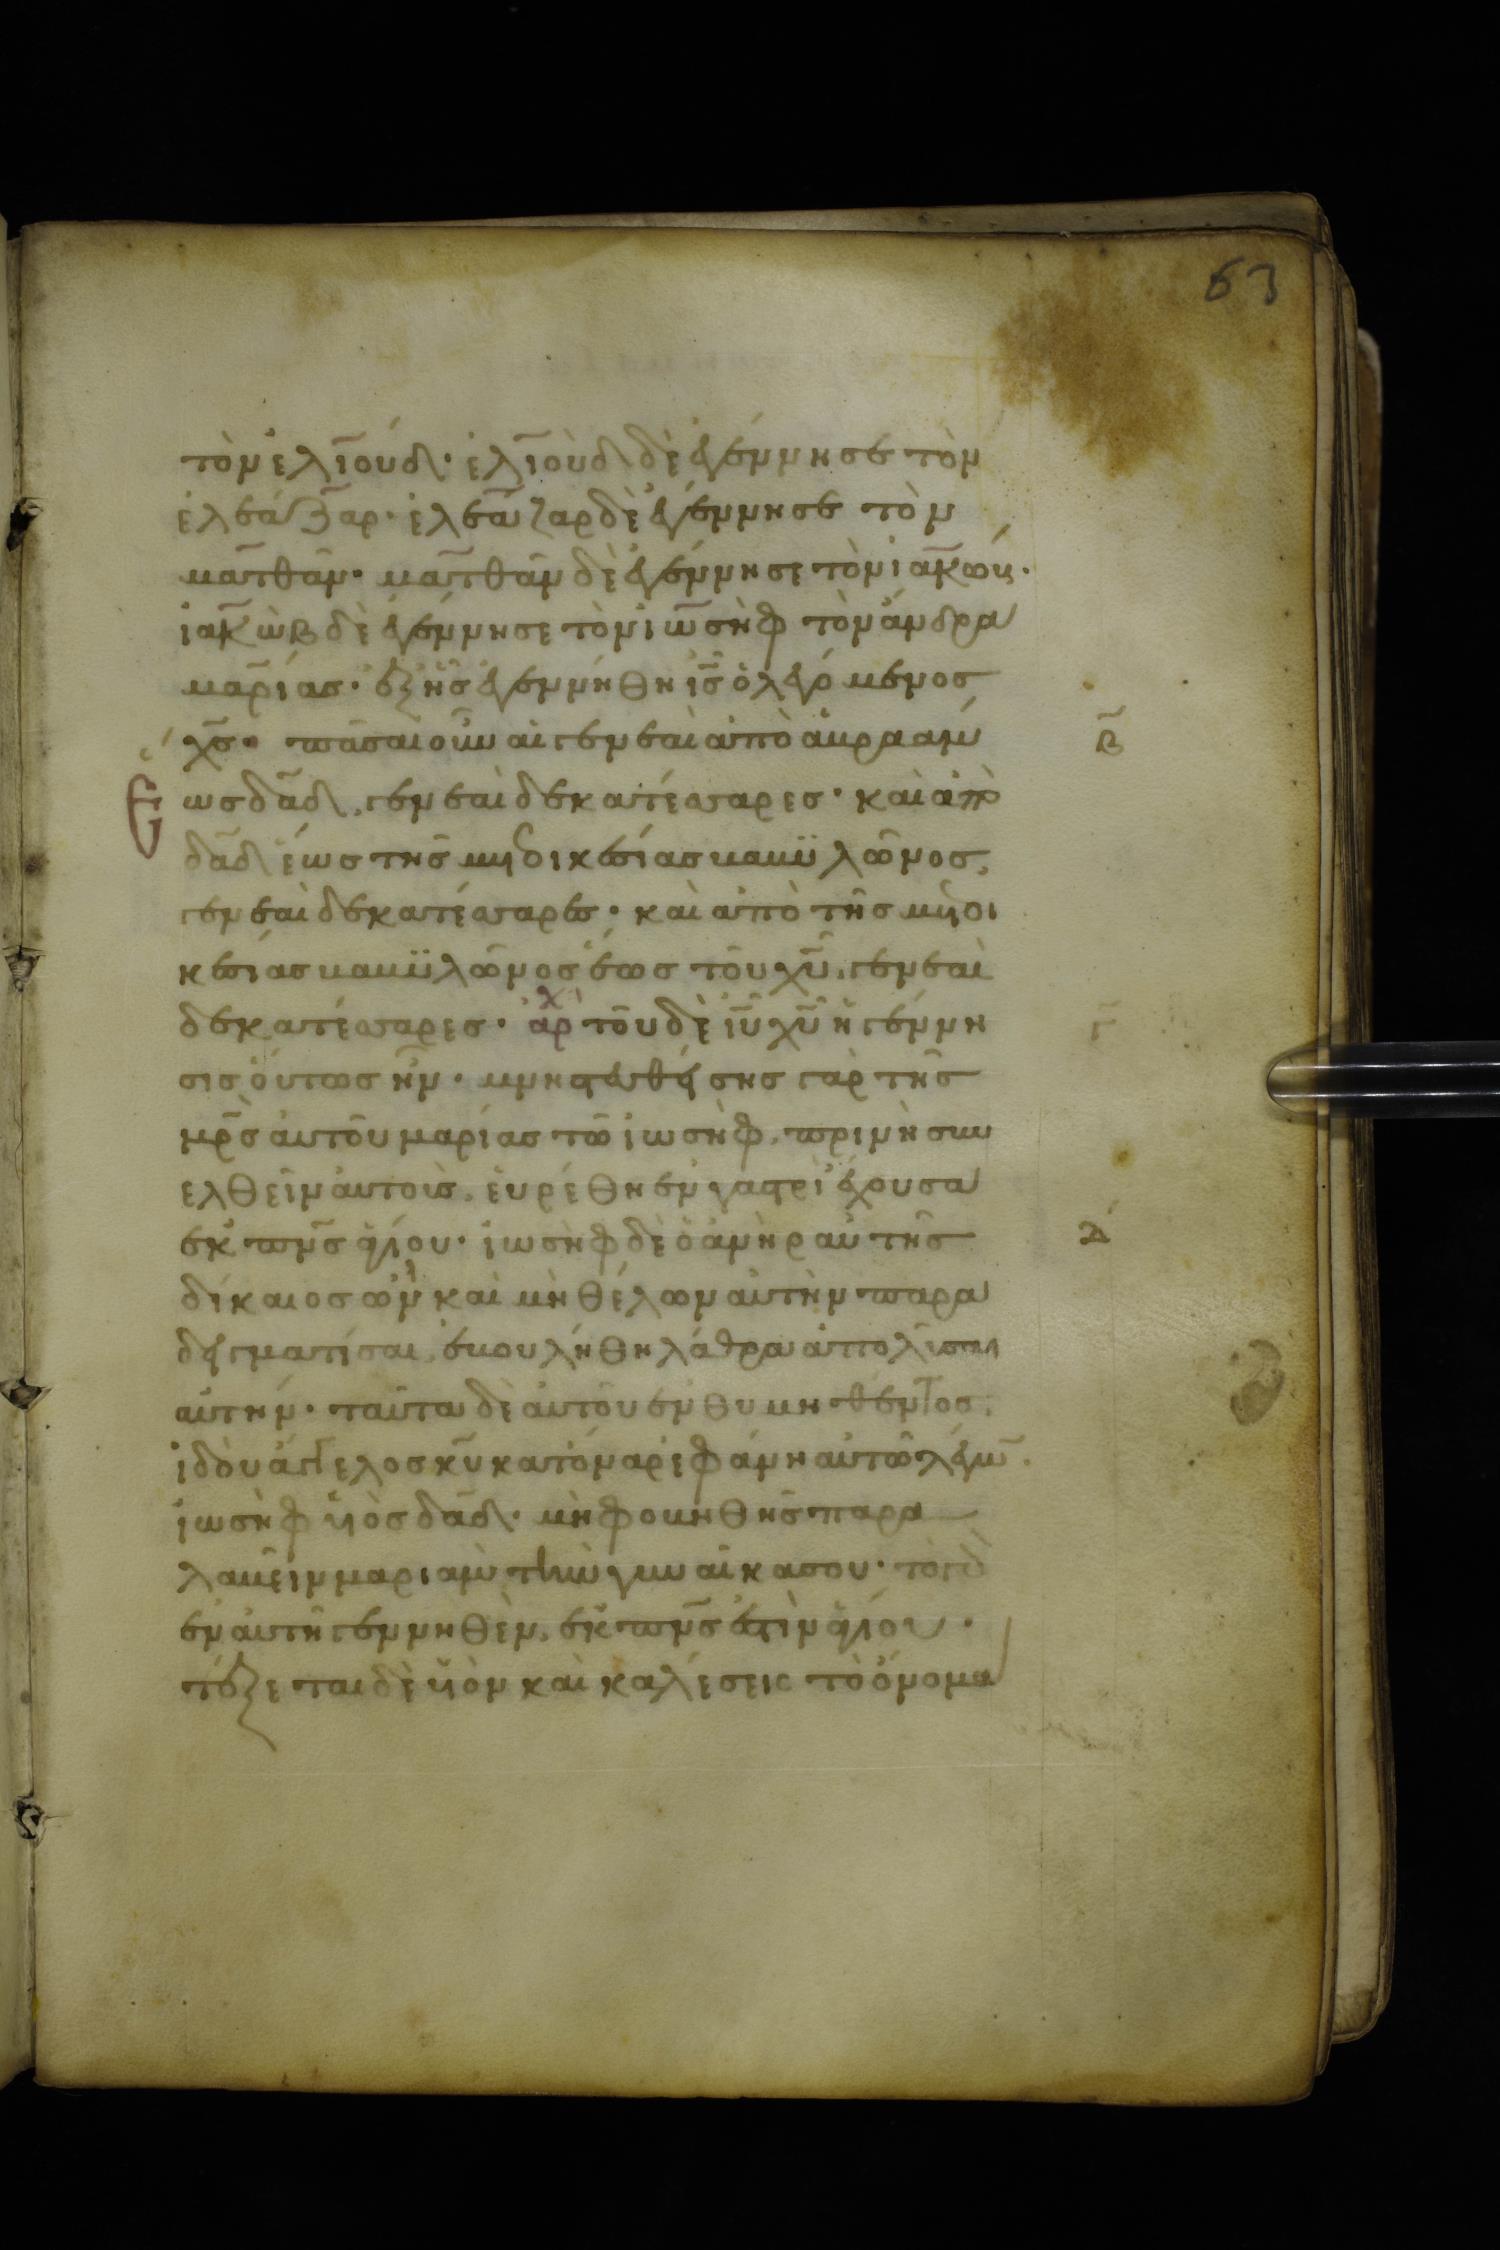 63
τὸν ἐλιοὺδ· ἐλιοὺδ δὲ ἐγέννησε τὸν
ἐλεάζαρ· ἐλεάζαρ δὲ ἐγέννησε τὸν
ματθάν· ματθὰν δὲ ἐγέννησε τὸν ἰακώβ·
ἰακὼβ δὲ ἐγέννησε τὸν ἰωσὴφ τὸν ἄνδρα
μαρίας· ἐξ ἧς ἐγεννήθη ις̅ ὁ λεγόμενος
χς̅· πᾶσαι οὖν αἱ γενεαὶ ἀπὸ ἀβραὰμ
Β̅
Ἕ
ως δαδ̅, γενεαὶ δεκατέσσαρες· καὶ ἀπὸ
δαδ̅ ἕως τῆς μετοικεσίας βαβυλῶνος,
γενεαὶ δεκατέσσαρες· καὶ ἀπὸ τῆς μετοι
κεσίας βαβυλῶνος ἕως τοῦ χυ̅, γενεαὶ
δεκατέσσαρες· ἀρχ τοῦ δὲ ιυ̅ χυ̅ ἡ γέννη
Γ̅
σις οὕτως ἦν· μνηστευθείσης γὰρ τῆς
μρ̅ς αὐτοῦ μαρίας τῶ ἰωσὴφ, πρὶν ἢ συν
ελθεῖν αὐτοὺς, εὑρέθη ἐν γαστρὶ ἔχουσα
ἐκ πνς̅ ἁγίου· ἰωσὴφ δὲ ὁ ἀνὴρ αὐτῆς
Δ
δίκαιος ὢν καὶ μὴ θέλων αὐτὴν παρα
δειγματίσαι, ἐβουλήθη λάθρα ἀπολῦσαι
αὐτήν· ταῦτα δὲ αὐτοῦ ἐνθυμηθέντος,
ἰδοὺ ἄγγελος κυ̅ κατ' ὄναρ ἐφάνη αὐτῶ λέγων·
ἰωσὴφ υἱὸς δαδ̅· μὴ φοβηθῆς παρα
λαβεῖν μαριὰμ τὴν γυναῖκα σου· τὸ γὰρ
ἐν αὐτῆ γεννηθὲν, ἐκ πνς̅ ἐστὶν ἁγίου·
τέξεται δὲ υἱὸν καὶ καλέσεις τὸ ὄνομα